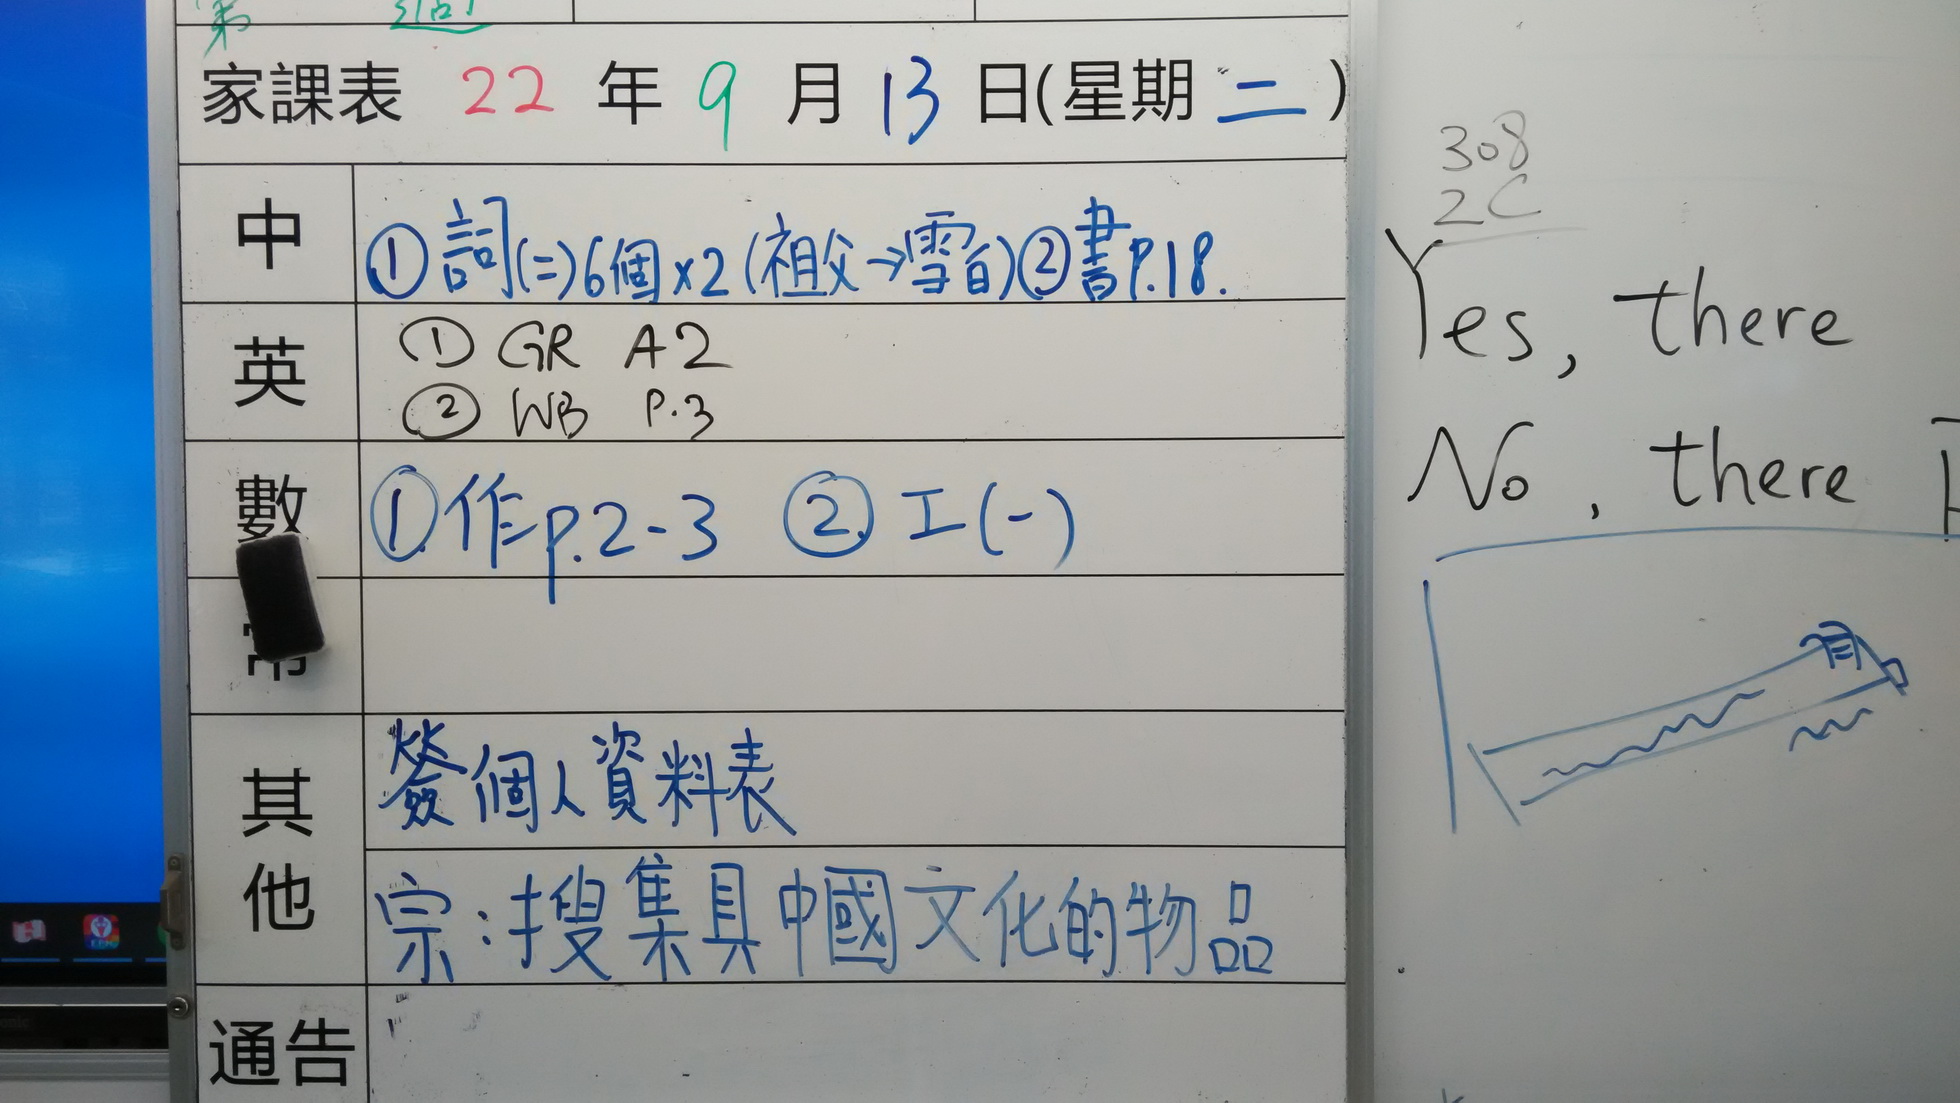 第 週
家課表 22 年 9 月 13 日(星期 二 )
中 ①詞(二)6個×2(祖父→雪白)②書P.18.
英 ① GR A2
② WB P.3
數 ①作p.2-3 ②工(一)
常
其他 簽個人資料表
宗:搜集具中國文化的物品
通告
308
2C
Yes, there
No, there